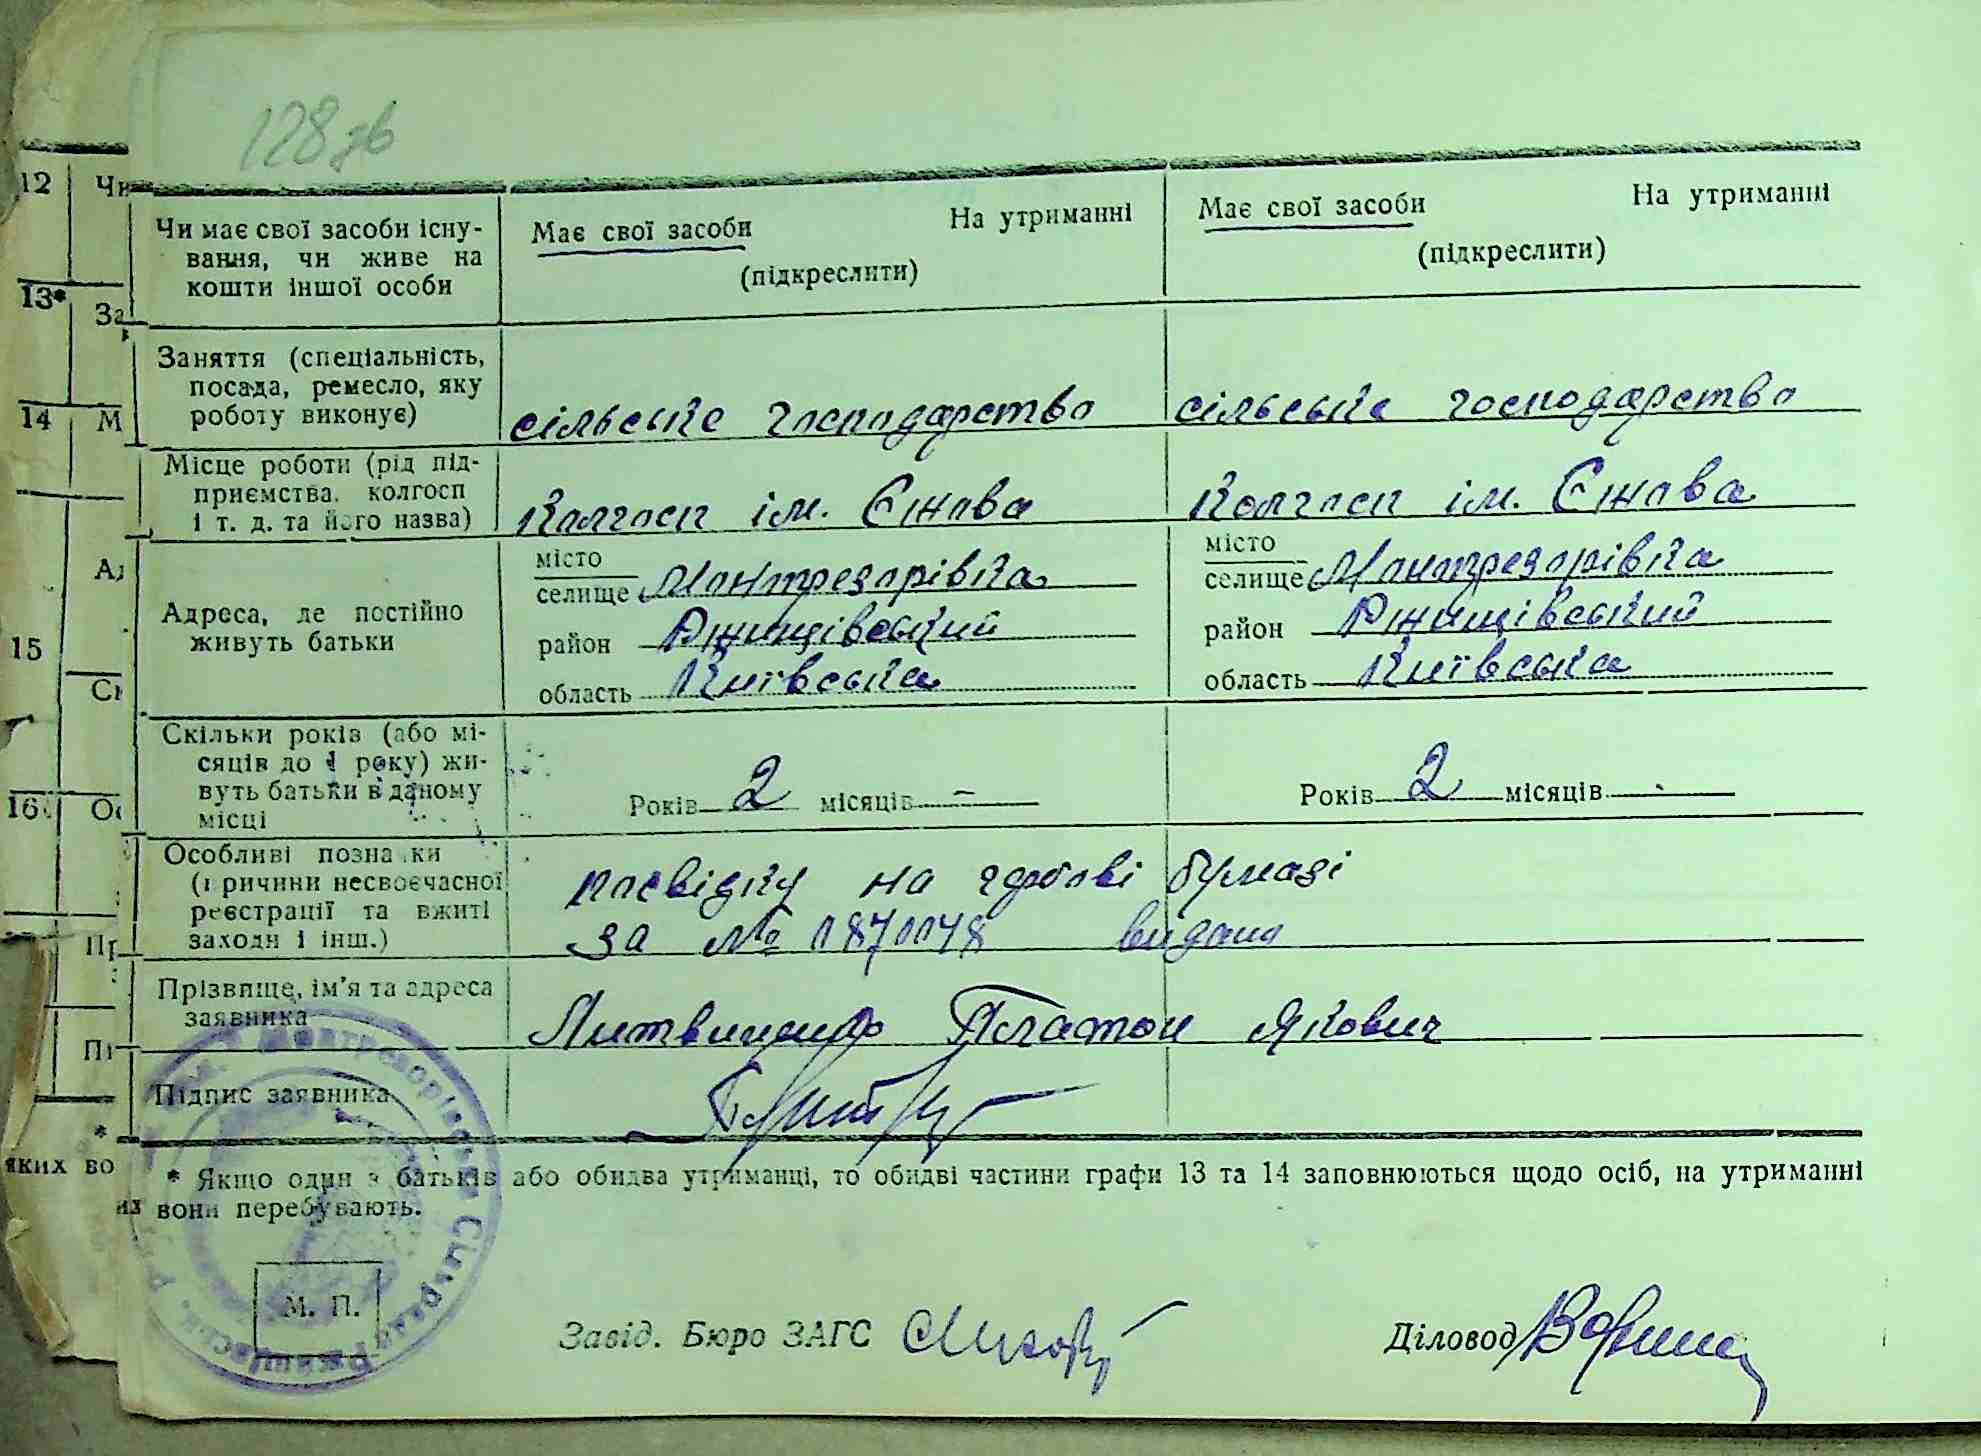 128 зв
12 Чи
Чи має свої засоби існу-
вання, чи живе на
кошти іншої особи
Має свої засоби На утриманні
(підкреслити)
Має свої засоби На утриманні
(підкреслити)
13* За
Заняття (спеціальність,
посада, ремесло, яку
роботу виконує)
сільське господарство
сільське господарство
14 М
Місце роботи (рід під-
приємства, колгосп
і т. д. та його назва)
Колгосп ім. Єжова
Колгосп ім. Єжова
15
Адреса, де постійно
живуть батьки
місто
селище Монтрезорівка
район Ржищівський
область Київська
місто
селище Монтрезорівка
район Ржищівський
область Київська
Ск
Скільки років (або мі-
сяців до 1 року) жи-
вуть батьки в даному
місці
Років 2 місяців -
Років 2 місяців -
16 Ос
Особливі позначки
(причини несвоєчасної
реєстрації та вжиті
заходи і інш.)
посвідку на гербові бумазі
за № 1870048 видана
Пр
Прізвище, ім'я та адреса
заявника
Литвиненко Платон Якович
Пі
Підпис заявника
* Якщо один з батьків або обидва утриманці, то обидві частини графи 13 та 14 заповнюються щодо осіб, на утриманні
вони перебувають.
яких во
М. П.
Завід. Бюро ЗАГС
Діловод